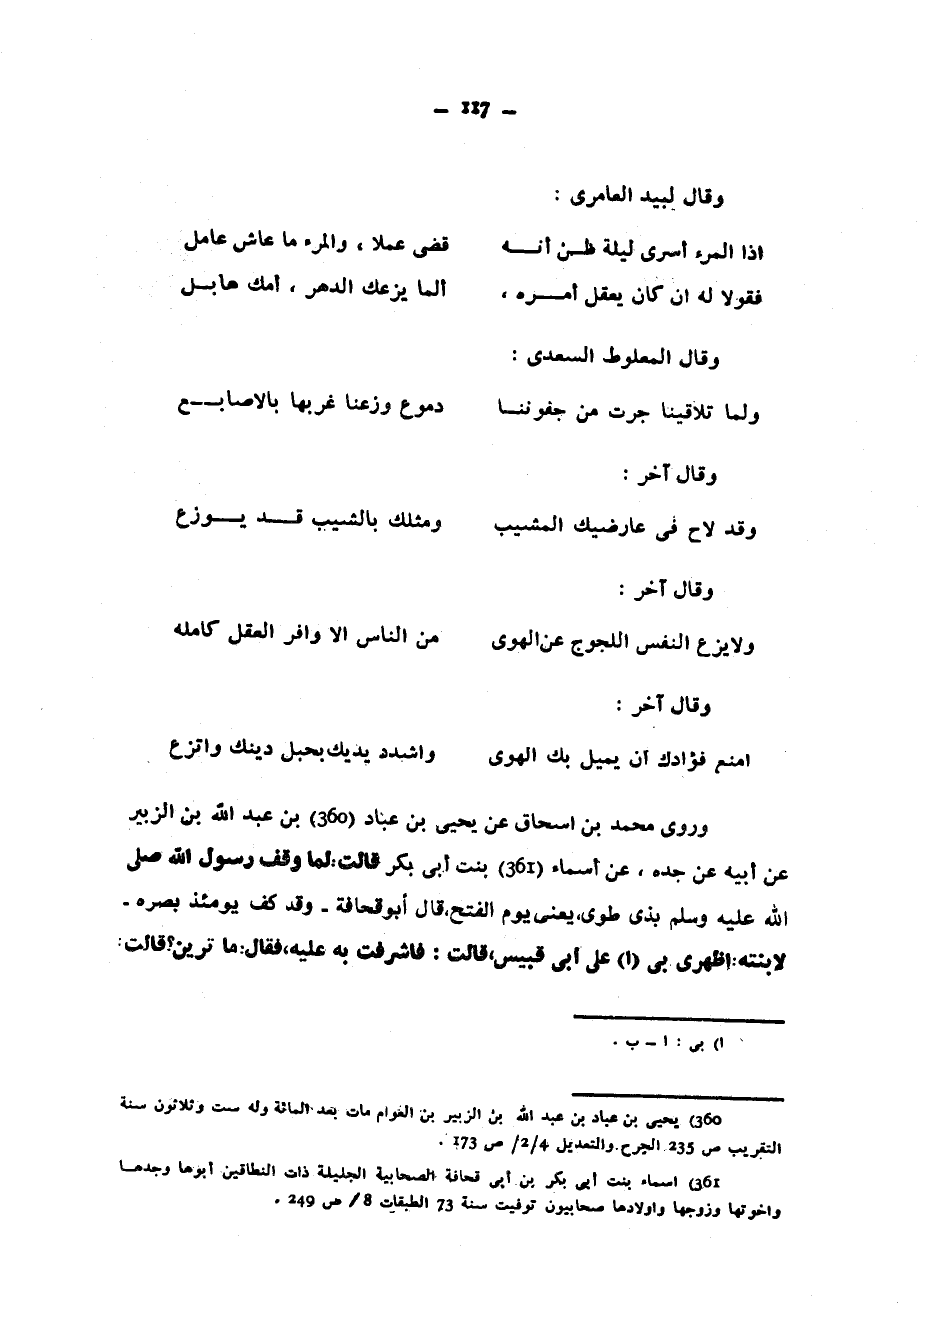 — 117 —
وقال لبيد العامرى :
اذا المرء أسرى ليلة ظـن أنـــه قضى عملا ، والمرء ما عاش عامل
فقولا له ان كان يعقل أمـــره ، ألما يزعك الدهر ، أمك هابـل
وقال المعلوط السعدى :
ولما تلاقينا جرت من جفوننـا دموع وزعنا غربها بالاصابـــع
وقال آخر :
وقد لاح فى عارضيك المشيب ومثلك بالشيب قــد يــوزع
وقال آخر :
ولايزع النفس اللجوج عن الهوى من الناس الا وافر العقل كامله
وقال آخر :
امنع فؤادك أن يميل بك الهوى واشدد يديك بحبل دينك واتزع
وروى محمد بن اسحاق عن يحيى بن عباد (360) بن عبد الله بن الزبير
عن أبيه عن جده ، عن أسماء (361) بنت أبى بكر قالت:لما وقف رسول الله صلى
الله عليه وسلم بذى طوى،يعنى يوم الفتح،قال أبوقحافة ـ وقد كف يومئذ بصره ـ
لابنته:اظهرى بى (ا) على أبى قبيس،قالت : فاشرفت به عليه،فقال:ما ترين؟قالت:
ا) بى : ا ـ ب .
360) يحيى بن عباد بن عبد الله بن الزبير بن العوام مات بعد المائة وله ست وثلاثون سنة
التقريب ص 235 الجرح والتعديل 2/4/ ص 173 .
361) اسماء بنت أبى بكر بن أبى قحافة الصحابية الجليلة ذات النطاقين أبوها وجدهـا
واخوتها وزوجها واولادها صحابيون توفيت سنة 73 الطبقات 8/ ص 249 .